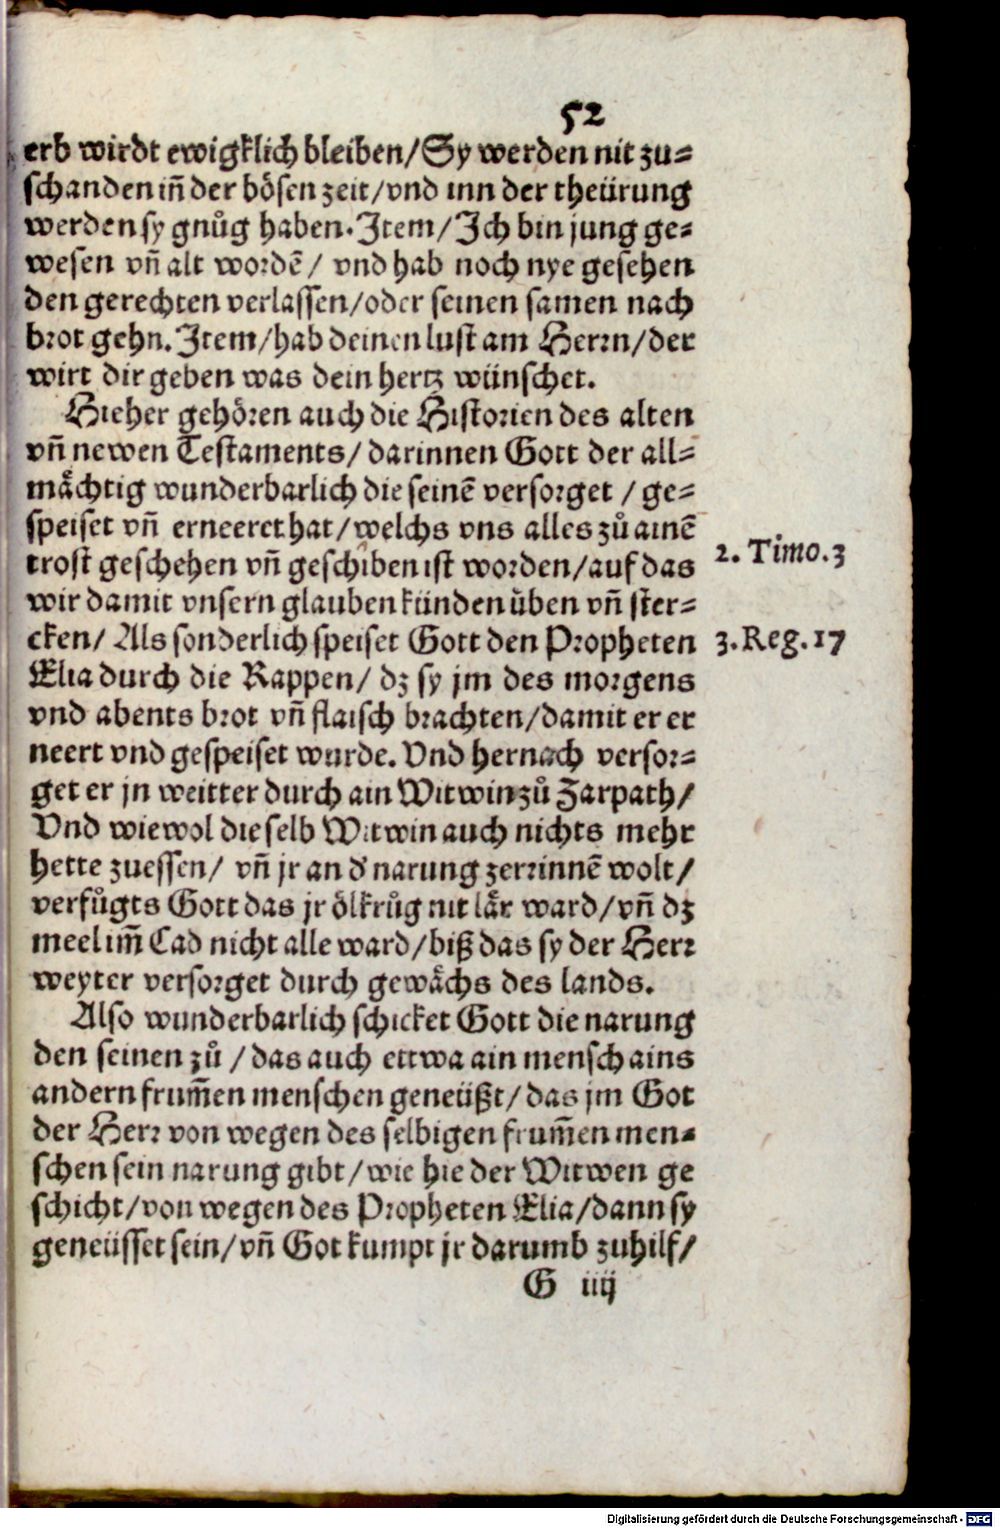 52
erb wirdt ewigklich bleiben/Sy werden nit zu⸗
schanden in̄ der bösen zeit/vnd inn der theürung
werden sy gnůg haben. Item/Ich bin jung ge⸗
wesen vn̄ alt wordē/ vnd hab noch nye gesehen
den gerechten verlassen/oder seinen samen nach
brot gehn. Item/hab deinen lust am Herrn/der
wirt dir geben was dein hertz wünschet.
Hieher gehören auch die Historien des alten
vn̄ newen Testaments/darinnen Gott der all⸗
mächtig wunderbarlich die seinē versorget /ge⸗
speiset vn̄ erneeret hat/welchs vns alles zů ainē
trost geschehen vn̄ geschiben ist worden/auf das
wir damit vnsern glauben künden üben vn̄ ster⸗
cken/ Als sonderlich speiset Gott den Propheten
Elia durch die Rappen/ dz sy jm des morgens
vnd abents brot vn̄ flaisch brachten/damit er er
neert vnd gespeiset wurde. Vnd hernach versor⸗
get er jn weitter durch ain Witwin zů Zarpath/
Vnd wiewol dieselb Witwin auch nichts mehr
hette zuessen/ vn̄ jr an d' narung zerrinnē wolt/
verfůgts Gott das jr ölkrůg nit lär ward/vn̄ dz
meel im̄ Cad nicht alle ward/biß das sy der Herr
weyter versorget durch gewächs des lands.
Also wunderbarlich schicket Gott die narung
den seinen zů /das auch ettwa ain mensch ains
andern frum̄en menschen geneüßt/das jm Got
der Herr von wegen des selbigen frum̄en men⸗
schen sein narung gibt/wie hie der Witwen ge
schicht/von wegen des Propheten Elia/dann sy
geneüsset sein/vn̄ Got kumpt jr darumb zuhilf/
G iiij
2. Timo. 3
3. Reg. 17
Digitalisierung gefördert durch die Deutsche Forschungsgemeinschaft - DFG